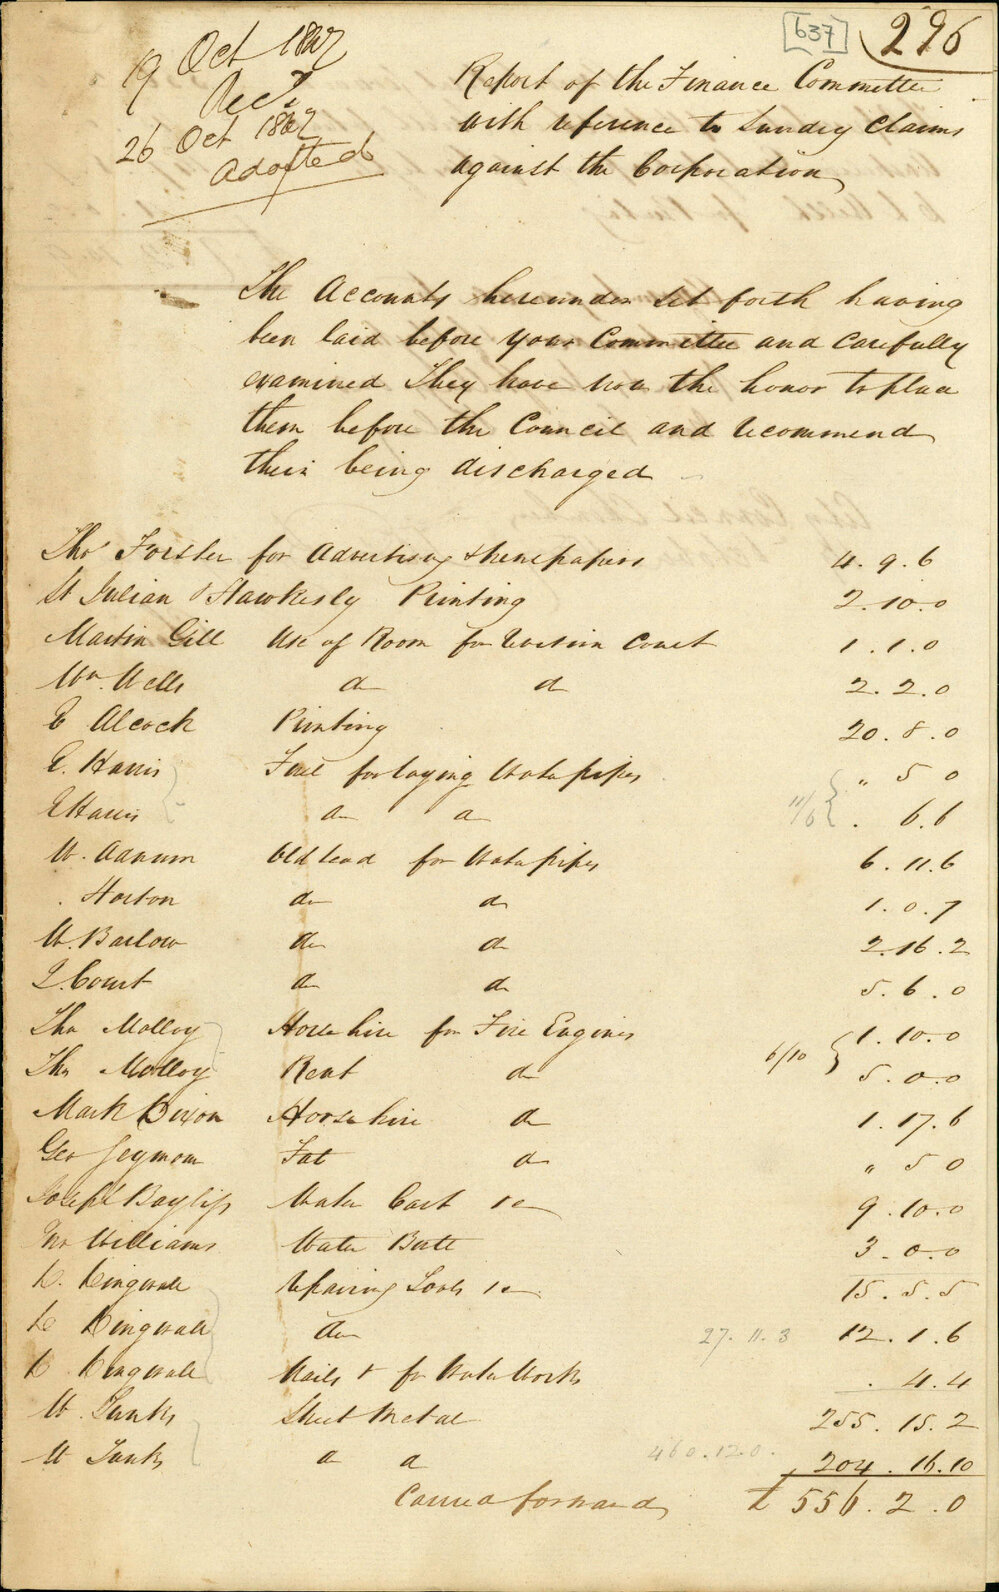 637
296
19 Oct 1847
Recd
26 Oct 1847
Adopted
Report of the Finance Committee
with reference to Sundry Claims
against the Corporation
The Accounts hereunder set forth having
been laid before your Committee and carefully
examined They have now the honor to place
them before the Council and recommend
their being discharged
Thos Forster for Advertising & Newspapers 4. 9. 6
St Julian & Hawkesly Printing 2. 10. 0
Martin Gill Use of Room for Revision Court 1. 1. 0
Wm. Wells do do 2. 2. 0
E Alcock Printing 20. 8. 0
E. Harris Fuel for laying Water pipes " 5 0
E Harris do do 11/6 . 6. 6
W. Old Lead for Water pipes 6. 11. 6
. Horton do do 1. 0. 7
W. Barlow do do 2. 16. 2
J. Court do do 5. 6. 0
Tho Molloy Horse hire for Fire Engines 1. 10. 0
Tho Molloy Rent do 6/10 5. 0. 0
Mark Dixon Horse hire do 1. 17. 6
Geo Seymour Fat do " 5 0
Joseph Bayliss Water Cart &c 9. 10. 0
Williams Water Butt 3. 0. 0
D. Dingwall Repairing Tools &c 15. 5. 5
D Dingwall do 27. 11. 3 12. 1. 6
D Dingwall Nails & for Water Works . 4. 4
W. Tanks Sheet Metal 255. 15. 2
W Tanks do do 460. 12. 0. 204. 16. 10
Carried forward £ 556. 2. 0